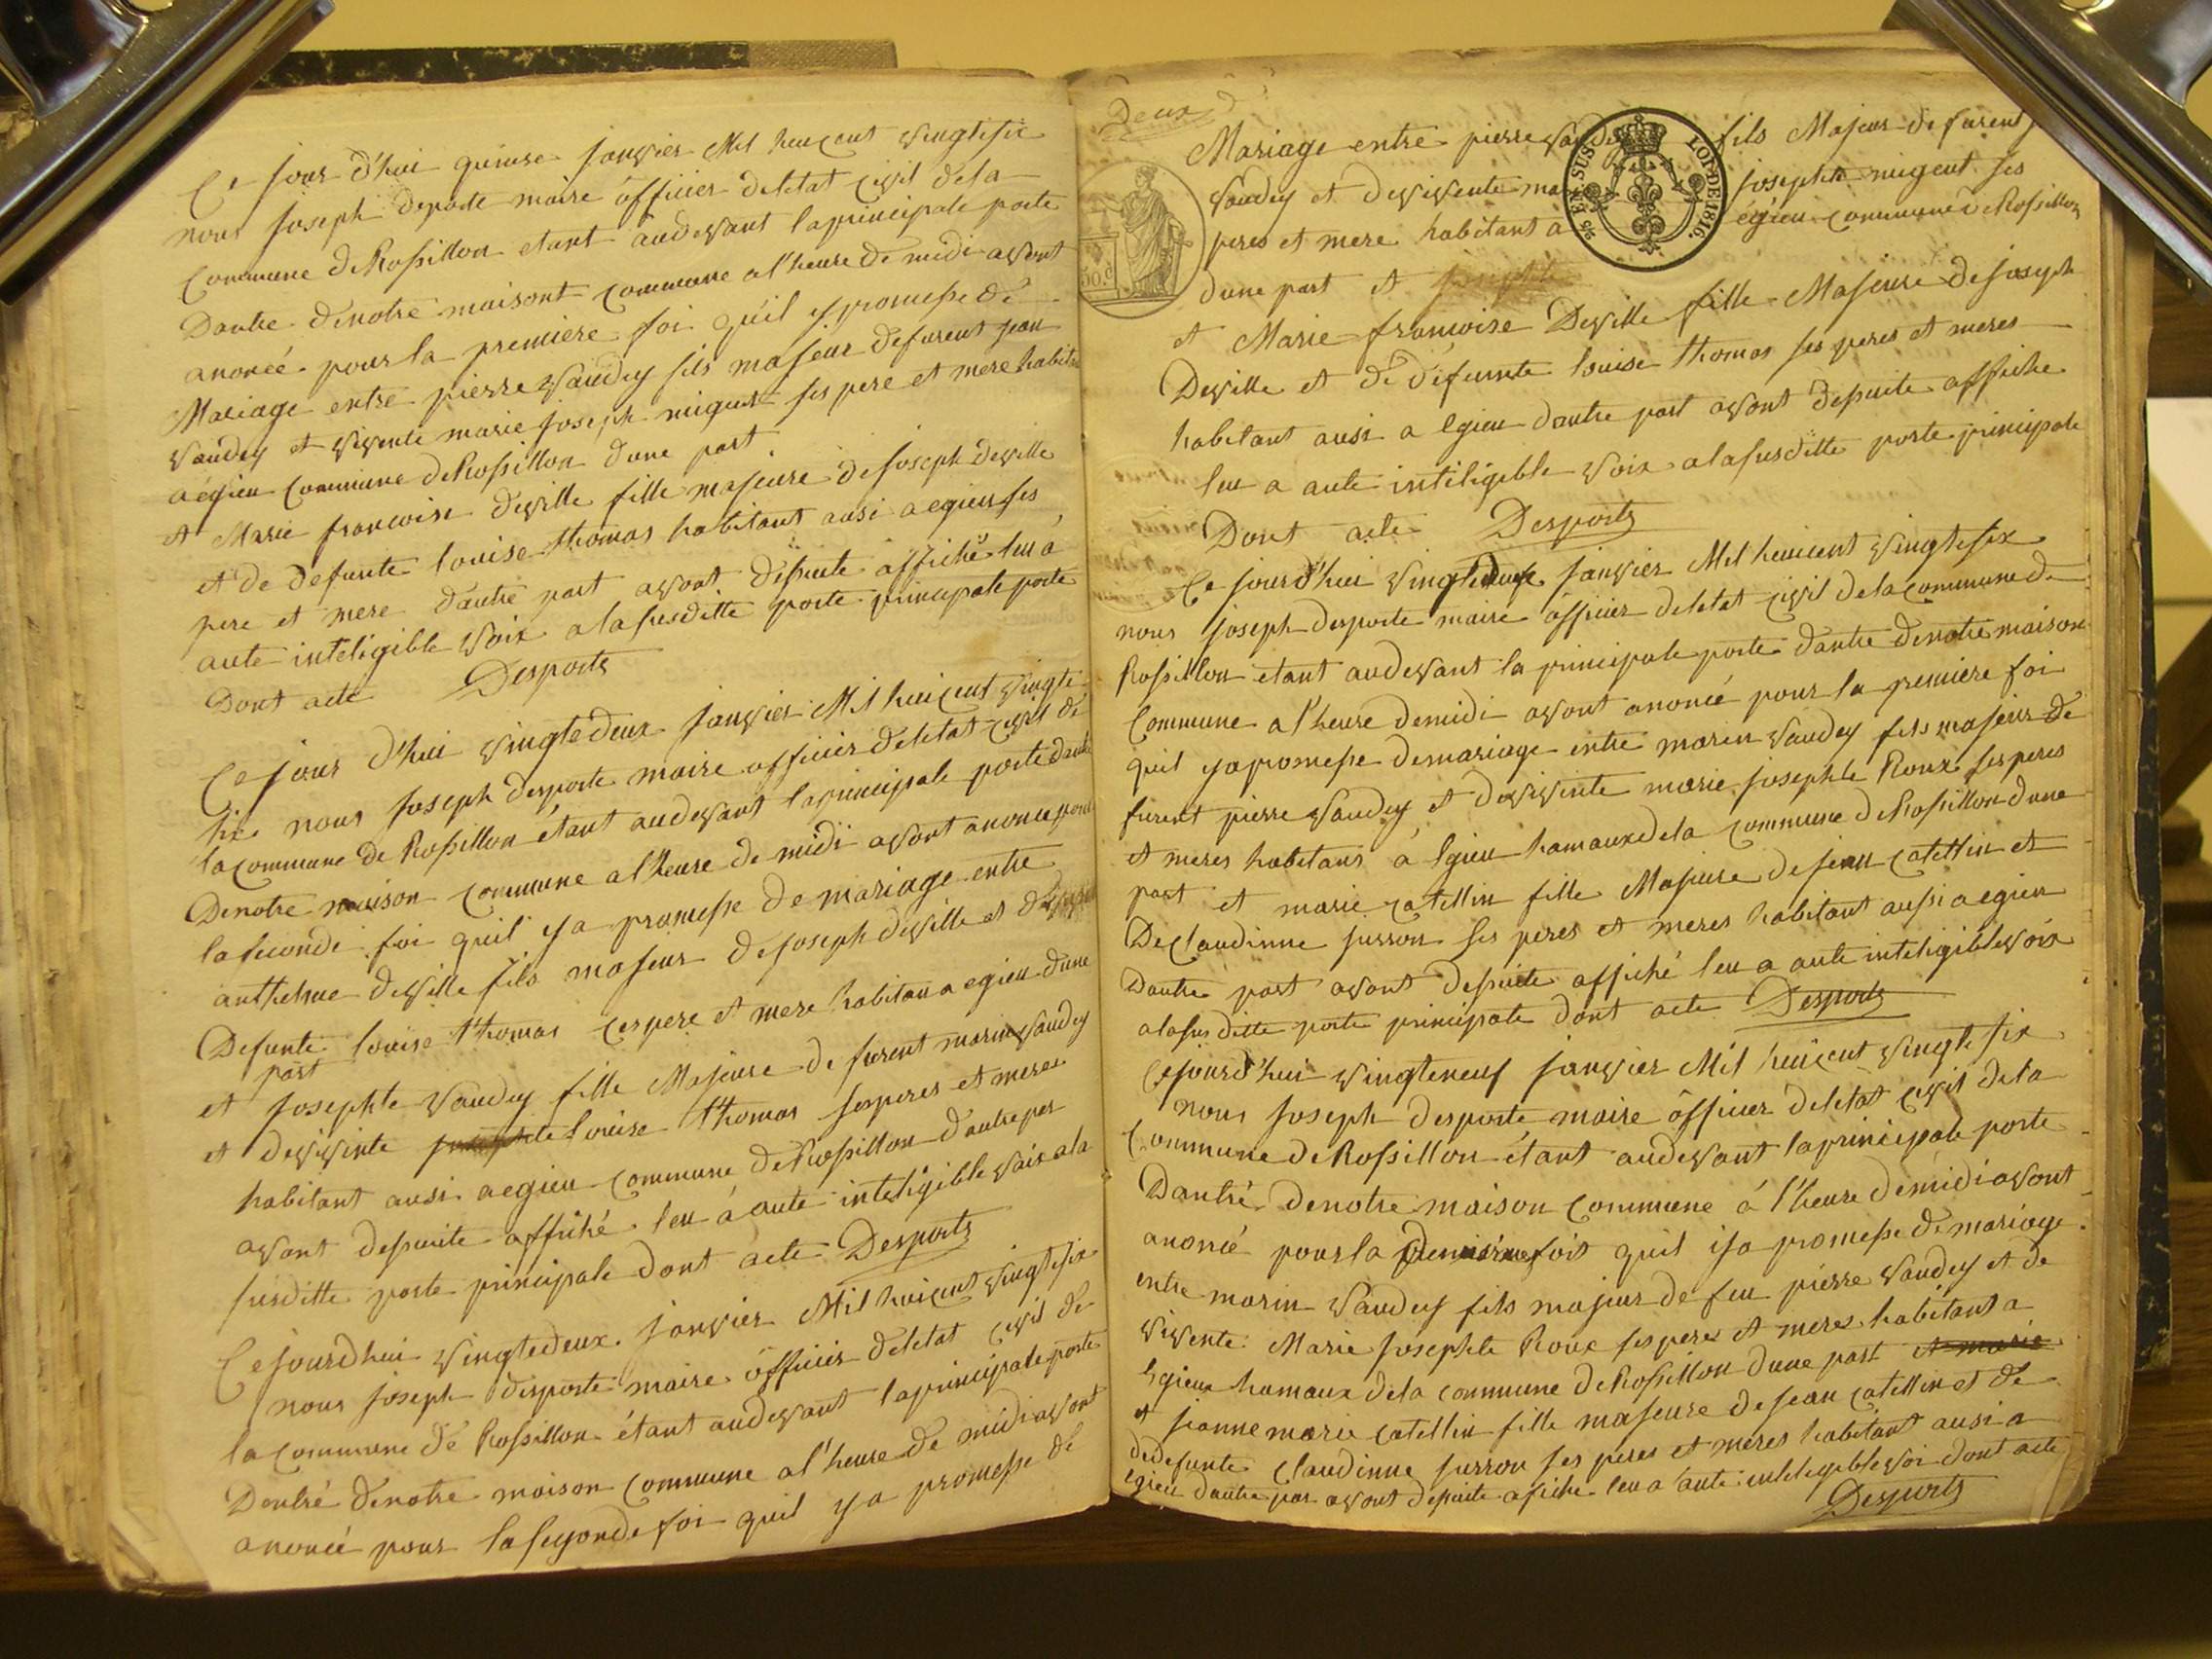 Ce jour d'hui quinse janvier Mil huicent vingtesix
nous joseph deporte maire officier deletat civil dela
Commune de Rossillon etant audevant laprincipale porte
Dantre denotre maisont commune a l'heure de midi avont
anoncé pour la premiere foi quil y promesse de
Mariage entre pierre vaudey fils majeur defurent jean
vaudey et vivente marie joseph migeut ses pere et mere habita
a egieu Commune de Rossillon dune part
et Marie francoise deville fille majeure de joseph deville
et de defunte louise thomas habitant ausi a egieu ses
pere et mere dautre part avont desuite affiché leu a
aute inteligible voix alasusditte porte principale porte
Dont acte Desporte
Ce jour d'hui vingtedeux janvier Mil huicent vingte
six nous joseph desporte maire officier deletat civil de
la commune de Rossillon étant audevant laprincipale porte dantre
Denotre maison commune a l'heure de midi avont anoncé pour
la seconde foi quil ya promesse de mariage entre
anthelme deville fils majeur de joseph deville et
Defunte louise thomas ces pere et mere habitan a egieu dune
part
et josephte vaudey fille Majeure de furent marin vaudey
et devivinte josephte louise thomas ses peres et meres
habitant ausi aegieu commune de Rossillon dautre par
avont desuite affiché leu á aute inteligible voix ala
susditte porte principale dont acte Desporte
Cejourdhui vingtedeux janvier Mil huicent vingtesix
nous joseph desporte maire officier deletat civil de
la commune de Rossillon étant audevant laprincipale porte
Dentré denotre maison commune a l'heure de midi avont
anoncé pour la segonde foi quil ya promesse de
Deux
Mariage entre pierre vaudey fils Majeur de furent
vaudey et devivente ma josephte migeut ses
peres et mere habitant a egieu commune de Rossillon
dune part et josephte
et Marie francoise Deville fille Majeure de joseph
Deville et de défunte louise thomas ses peres et meres
habitant ausi a egieu dautre part avont desuite affiche
leu a aute inteligible voix alasusditte porte principale
Dont acte Desporte
Ce jourd'hui vingtedeux janvier Mil huicent vingtesix
nous joseph desporte maire officier deletat civil dela commune de
Rossillon etant audevant la principale porte dantre denotre maison
Commune a l'heure demidi avont anoncé pour la premiere foi
quil yapromesse demariage entre marin vaudey fils majeur de
furent pierre vaudey et devivinte marie josephte Roux ses peres
et meres habitans á Egieu hamaux dela commune de Rossillon dune
part et marie catellin fille Majeure de jean catellin et
De claudinne surron ses peres et meres habitant aussi a egieu
Dautre part avont desuite affiché leu a aute inteligible voix
alasusditte porte principale dont acte Desporte
Cejourd'hui vingteneuf janvier Mil huicent vingte six
nous joseph desporte maire officier deletat civil dela
Commune de Rossillon étant audevant laprincipale porte
Dantré denotre maison commune á l'heure demidi avont
anoncé pour la foit quil ya promesse de mariage
entre marin vaudey fils majeur de feu pierre vaudey et de
vivente Marie josephte Roux ses peres et meres habitant a
Egieux hamaux dela commune de Rossillon dune part et marie
et jeanne marie catellin fille majeure de jean catellin et de
dedefunte claudinne surron ses peres et meres habitant ausi a
Egieu dautre par avont desuite afiche leu a aute voi dont acte
Desporte
50.c
EN SUS
LOI DE 1816.